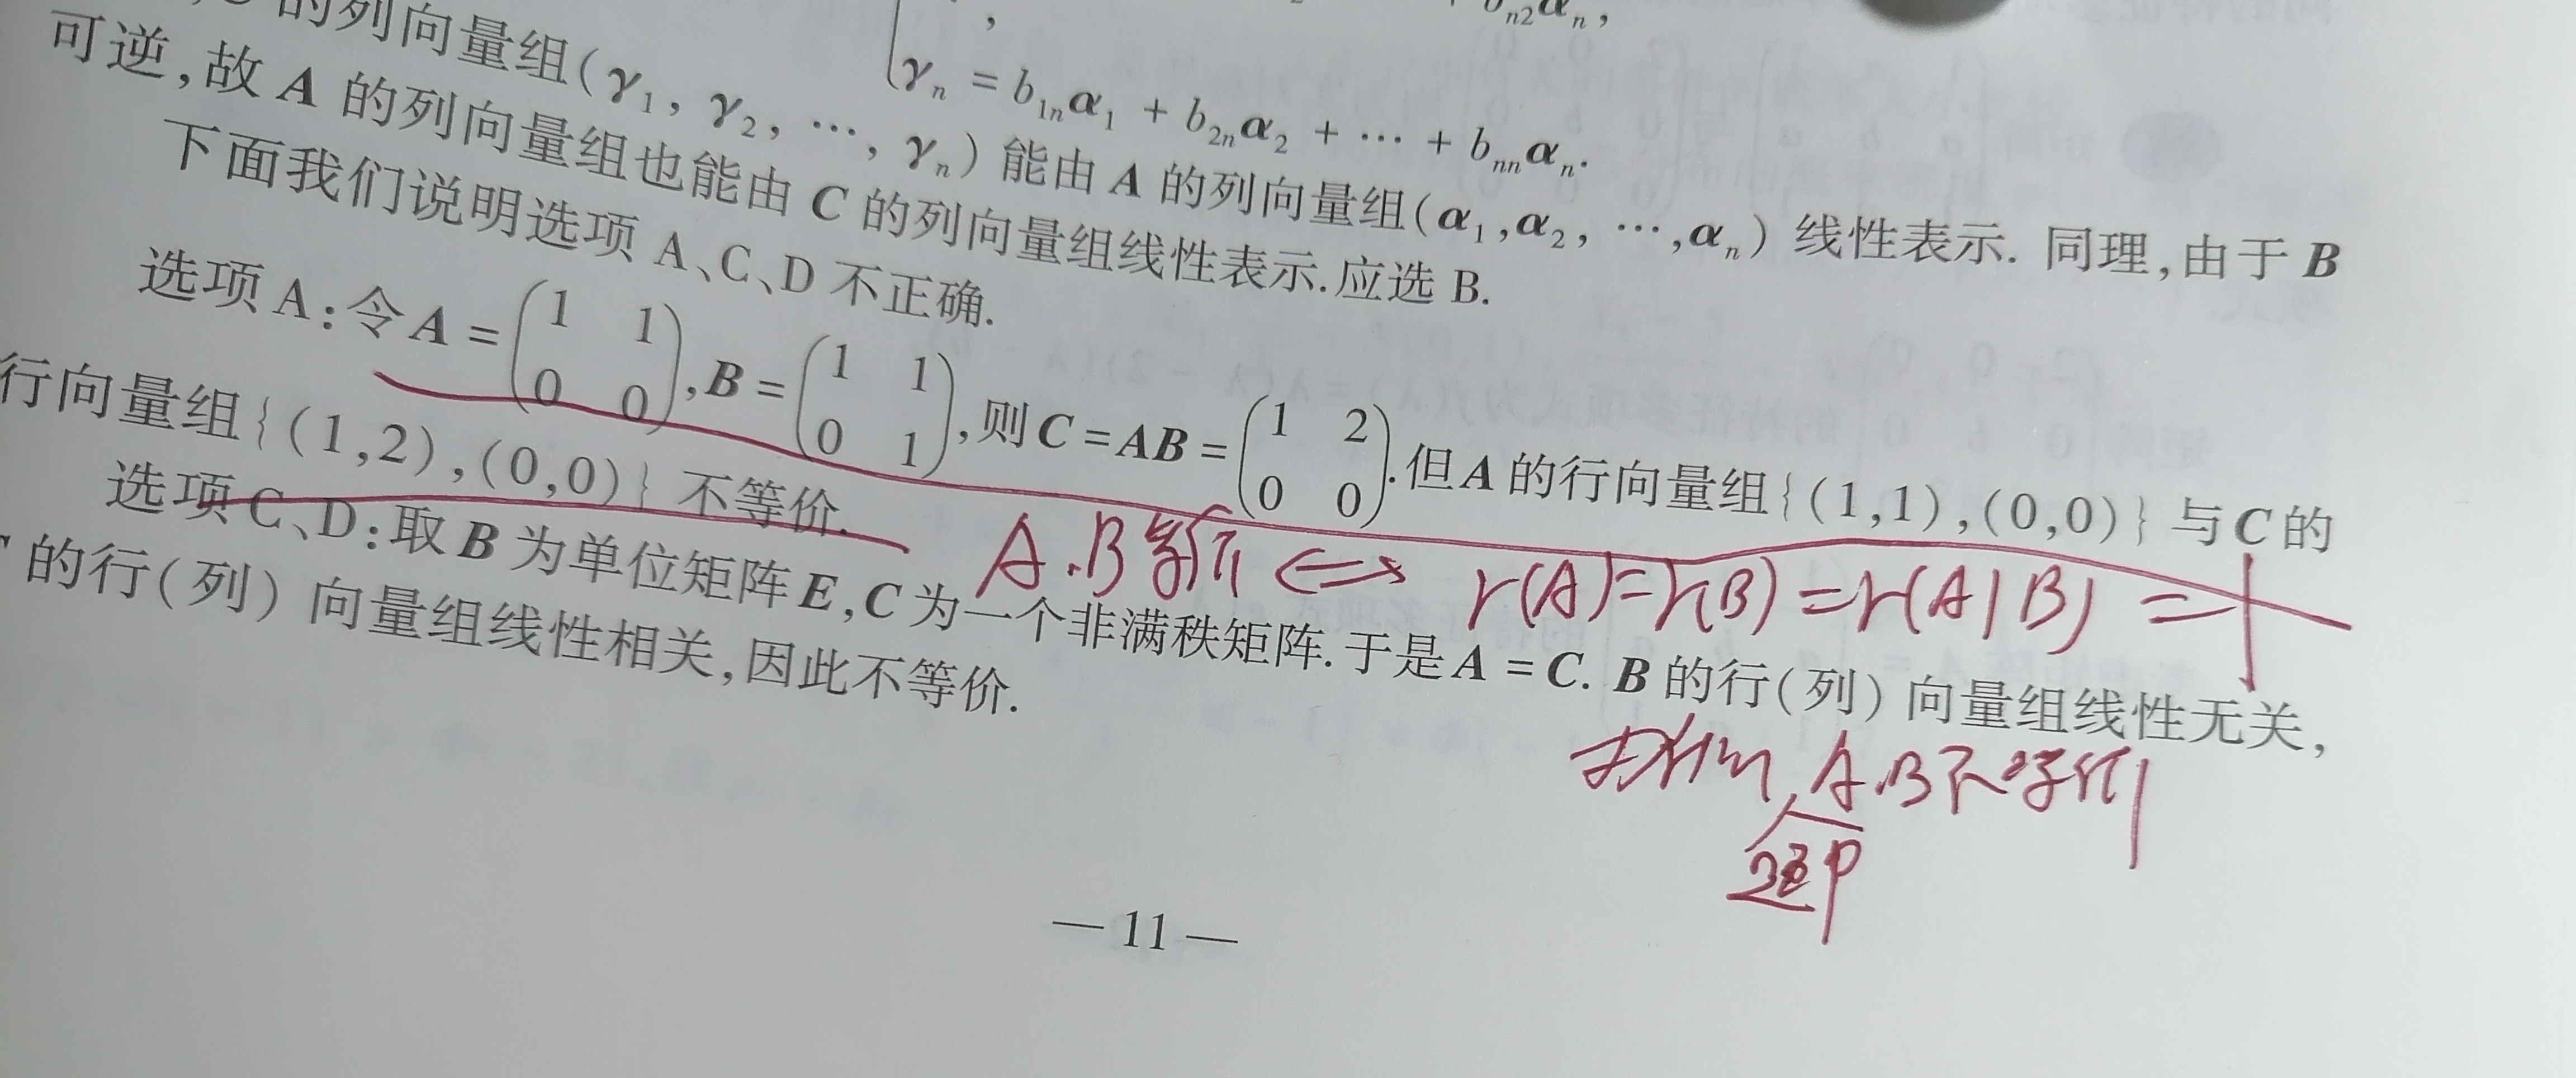 b_{n2}α_n,
的列向量组(γ_1, γ_2, …, γ_n) 能由 A 的列向量组(α_1,α_2, …,α_n) 线性表示. 同理,由于 B
γ_n = b_{1n}α_1 + b_{2n}α_2 + … + b_{nn}α_n.
可逆,故 A 的列向量组也能由 C 的列向量组线性表示.应选 B.
下面我们说明选项 A、C、D 不正确.
选项 A:令 A = (1 1; 0 0), B = (1 1; 0 1), 则 C = AB = (1 2; 0 0). 但 A 的行向量组{(1,1),(0,0)} 与 C 的
行向量组{(1,2),(0,0)} 不等价.
A.B等价 ⇔ r(A)=r(B)=r(A|B) =
选项 C、D:取 B 为单位矩阵 E,C 为一个非满秩矩阵.于是 A = C. B 的行(列) 向量组线性无关,
的行(列) 向量组线性相关,因此不等价.
A.B不等价
— 11 —